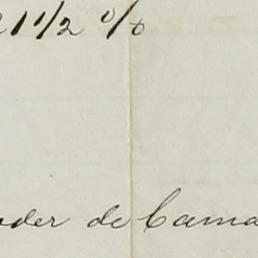 1 1/2 %
nder de Cama